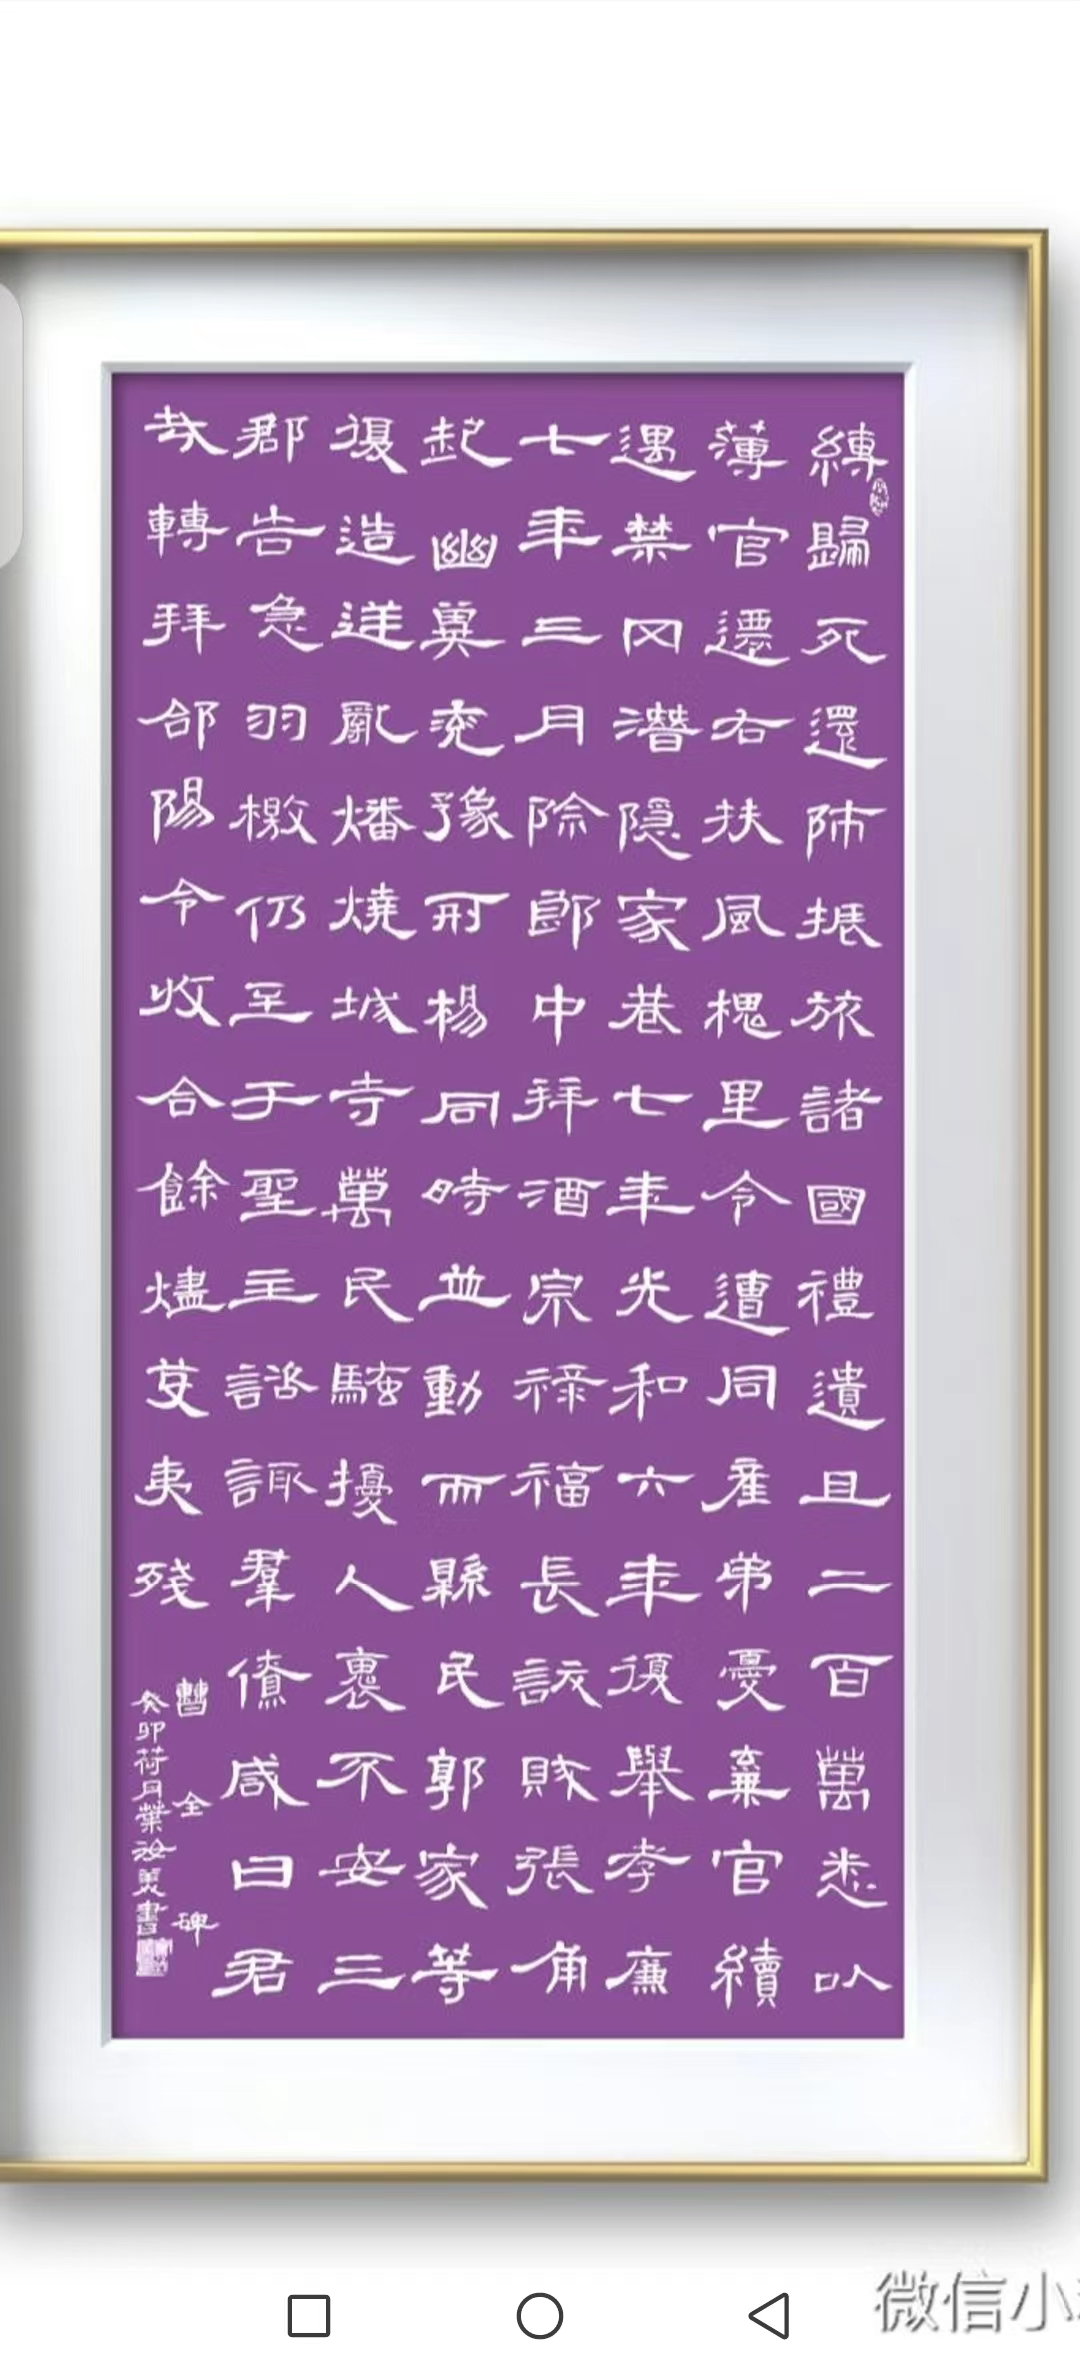 縛歸死還師振旅諸國禮遺且二百萬悉以
薄官遷右扶風槐里令遭同產弟憂棄官續
遇禁冈潛隱家巷七年光和六年復舉孝廉
七年三月除郎中拜酒宗祿福長訞賊張角
起幽冀兗豫荊楊同時並動而縣民郭家等
復造逆亂燔燒城寺萬民騷擾人裹不安三
郡告急羽檄仍至于聖主諮諏羣僚咸曰君
哉轉拜郃陽令收合餘燼芟夷殘
曹全碑
癸卯荷月葉汝美書
微信小